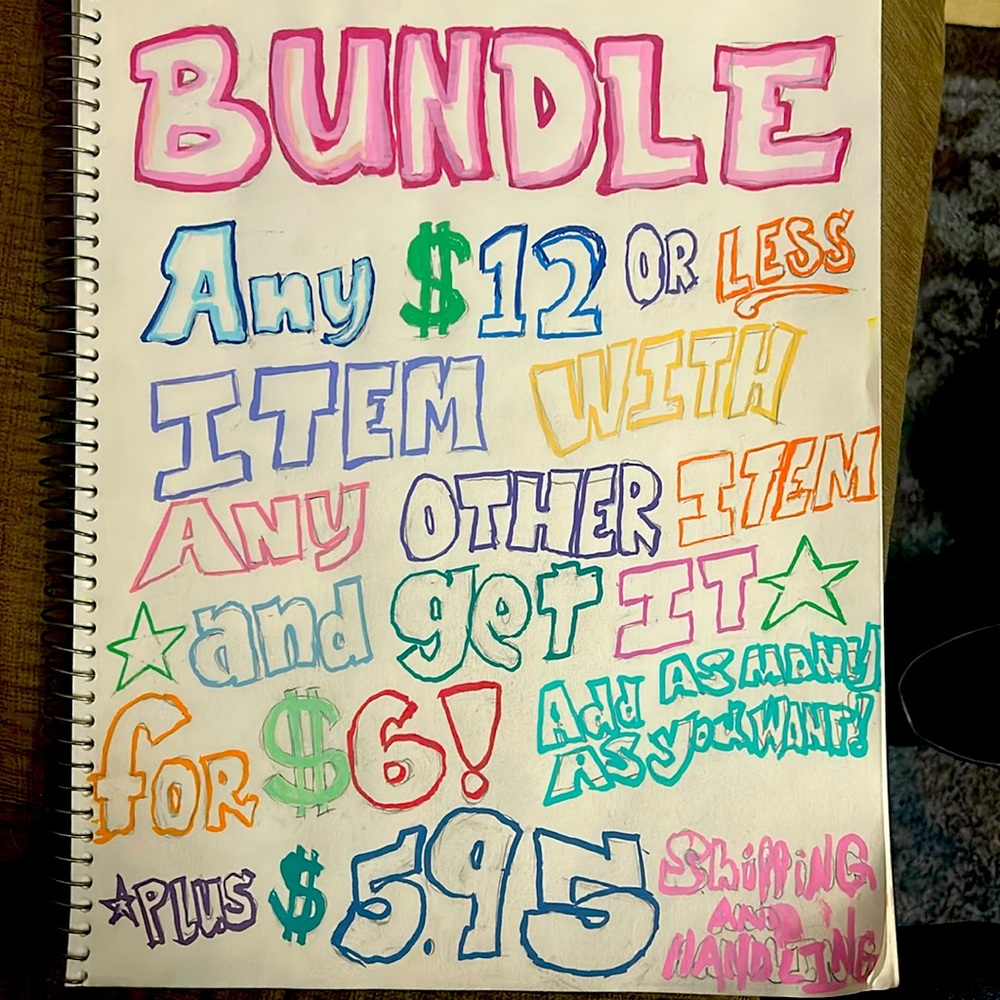 BUNDLE
Any $12 OR LESS
ITEM WITH
ANY OTHER ITEM
and get IT
for $6! Add AS MANY
AS you WANT!
PLUS $5.95 Shipping
AND
HANDLING